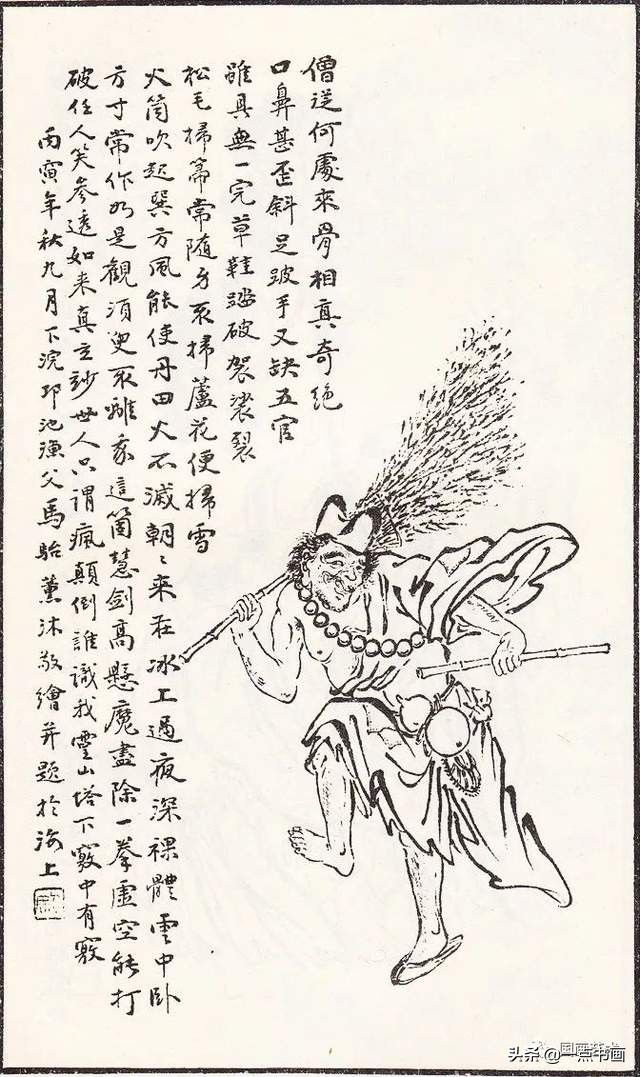 僧從何處來骨相真奇絶
口鼻甚歪斜足跛手又缺五官
雖具無一完草鞋踏破袈裟裂
松毛掃帚常隨身不掃蘆花便掃雪
火筒吹起巽方風能使丹田火不滅朝〻來在冰上過夜深裸體雲中卧
方寸常作如是觀須臾不離我這箇慧劍高懸魔盡除一拳虛空能打
破任人笑參透如来真立妙世人只謂瘋顛倒誰識我靈山塔下竅中有竅
丙寅年秋九月下浣邛池漁父馬駘薰沐敬繪并題於海上
国画艺术
头条 @一点书画